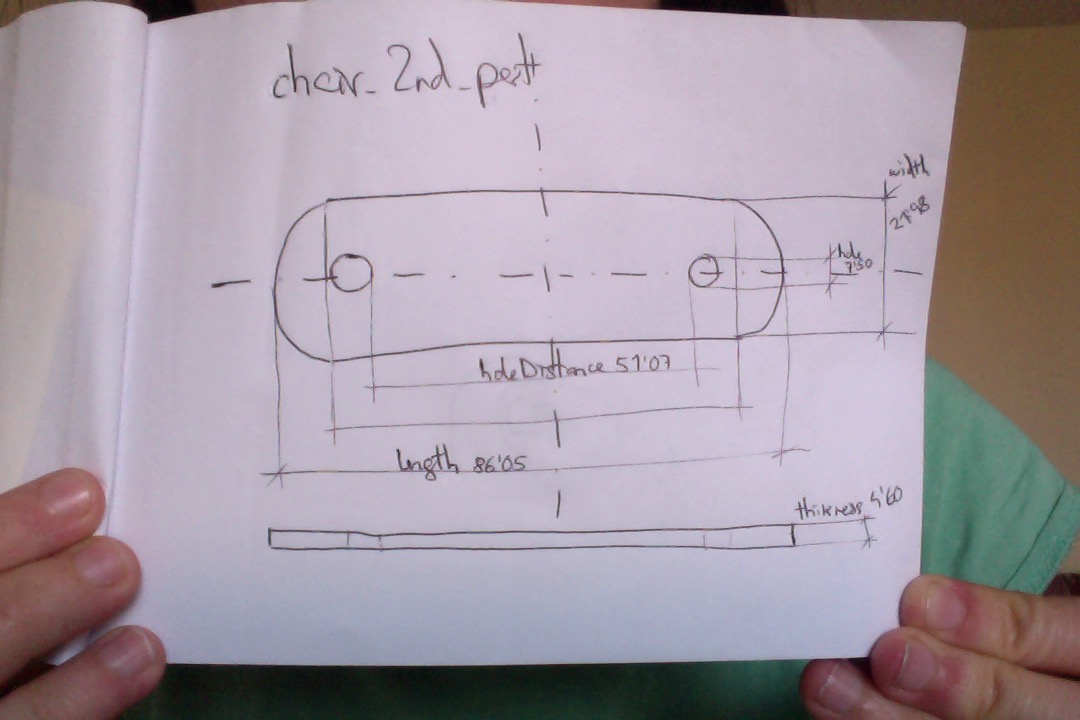 chair_2nd_part
width
21'98
hole
7'50
holeDisttance 51'07
length 86'05
thikness 4'60